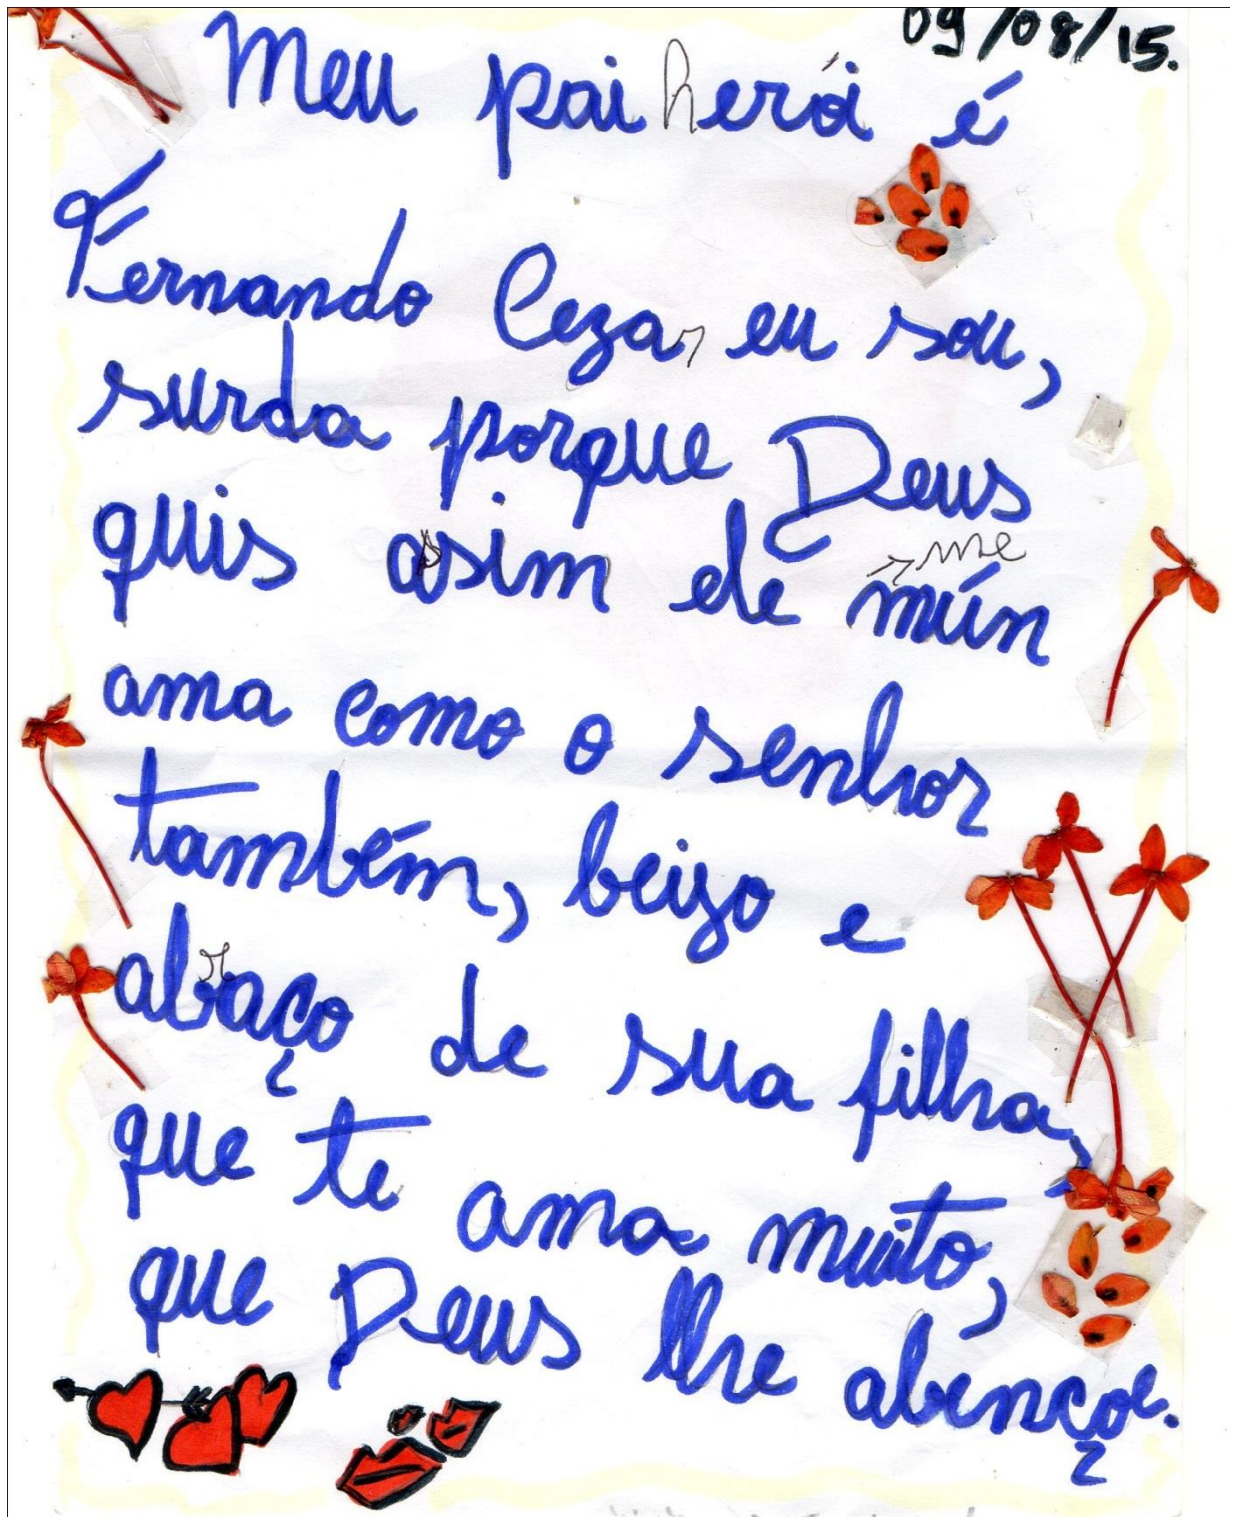 09/08/15.
Meu pai herói é
Fernando Cezar eu sou,
surda porque Deus
quis assim ele
me
mún
ama como o senhor
também, beizo e
abraço de sua filha,
que te ama muito,
que Deus lhe abençoe.